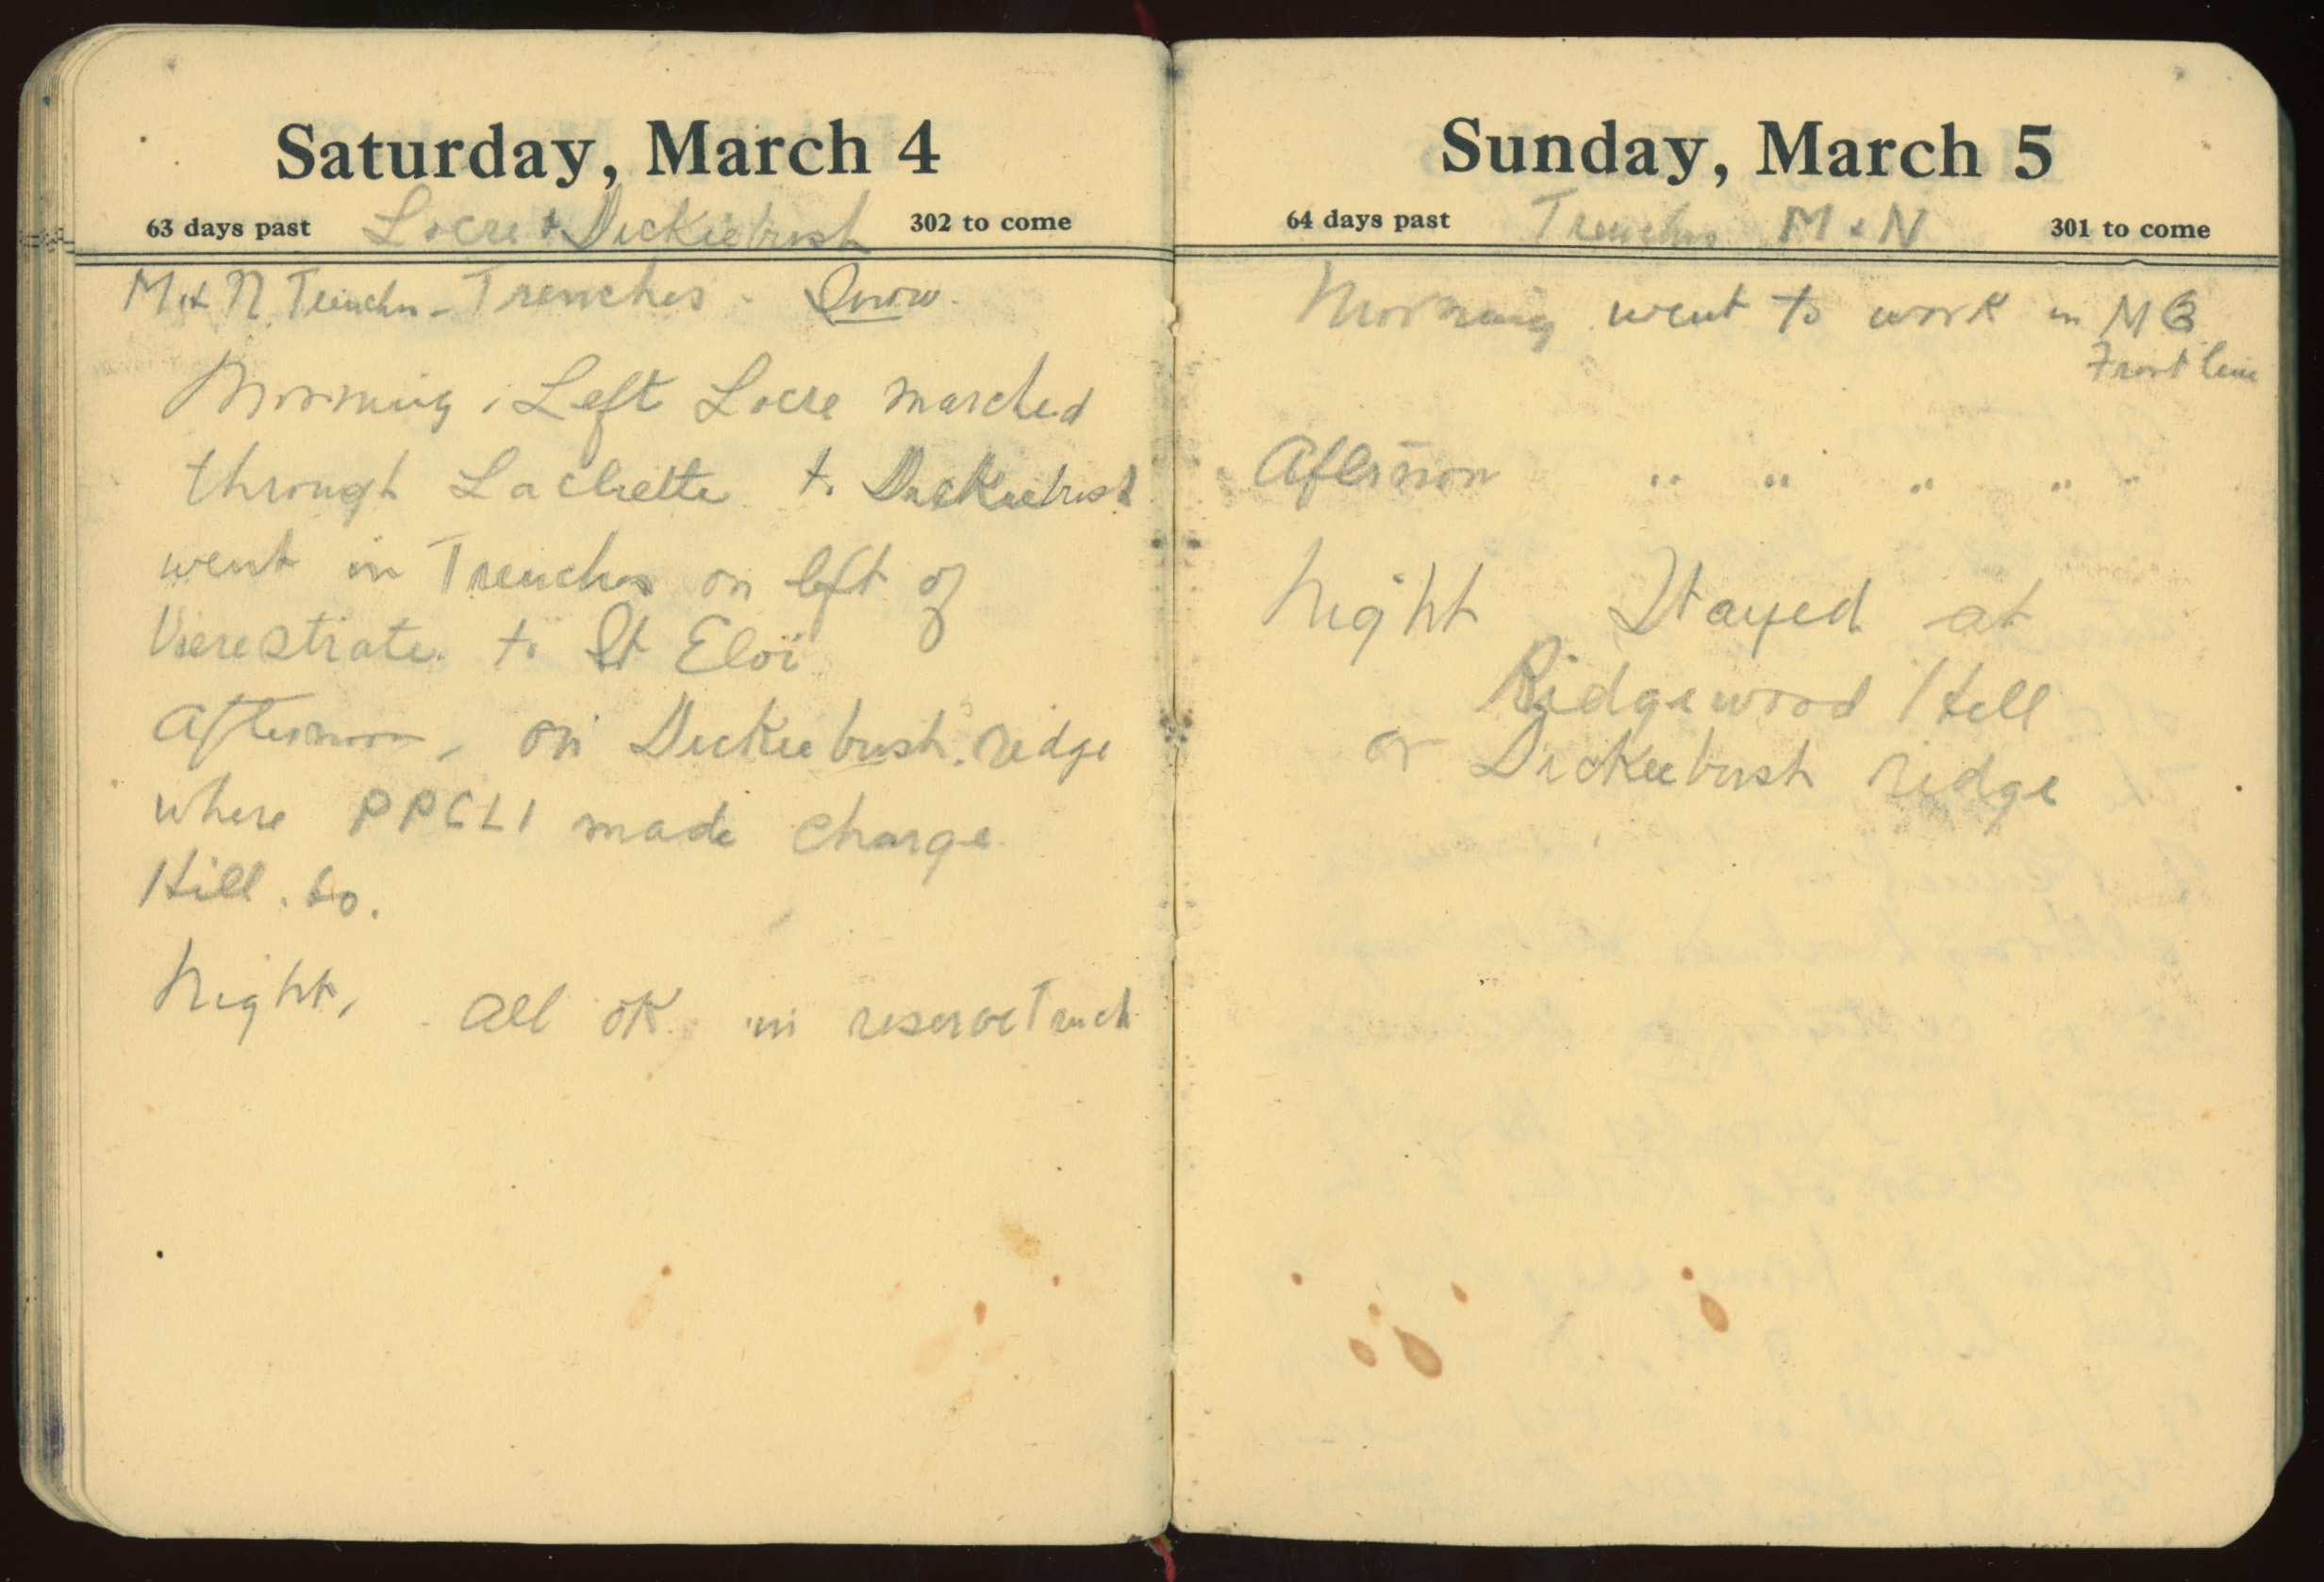 Saturday, March 4
63 days past Locre & Dickiebush 302 to come
M & N Trenches - Trenches. Snow.
Morning, Left Locre marched
through Laclette to Dickiebush
went in Trenches on left of
Vierestrate to St Eloi
Afternoon, on Dickiebush ridge
where PPCLI made charge
Hill 60.
Night, all OK in reserve Trench
Sunday, March 5
64 days past Trenches M & N 301 to come
Morning went to work in MG
Front line
Afternoon " " " " "
Night Stayed at
Ridgewood Hill
or Dickiebush ridge